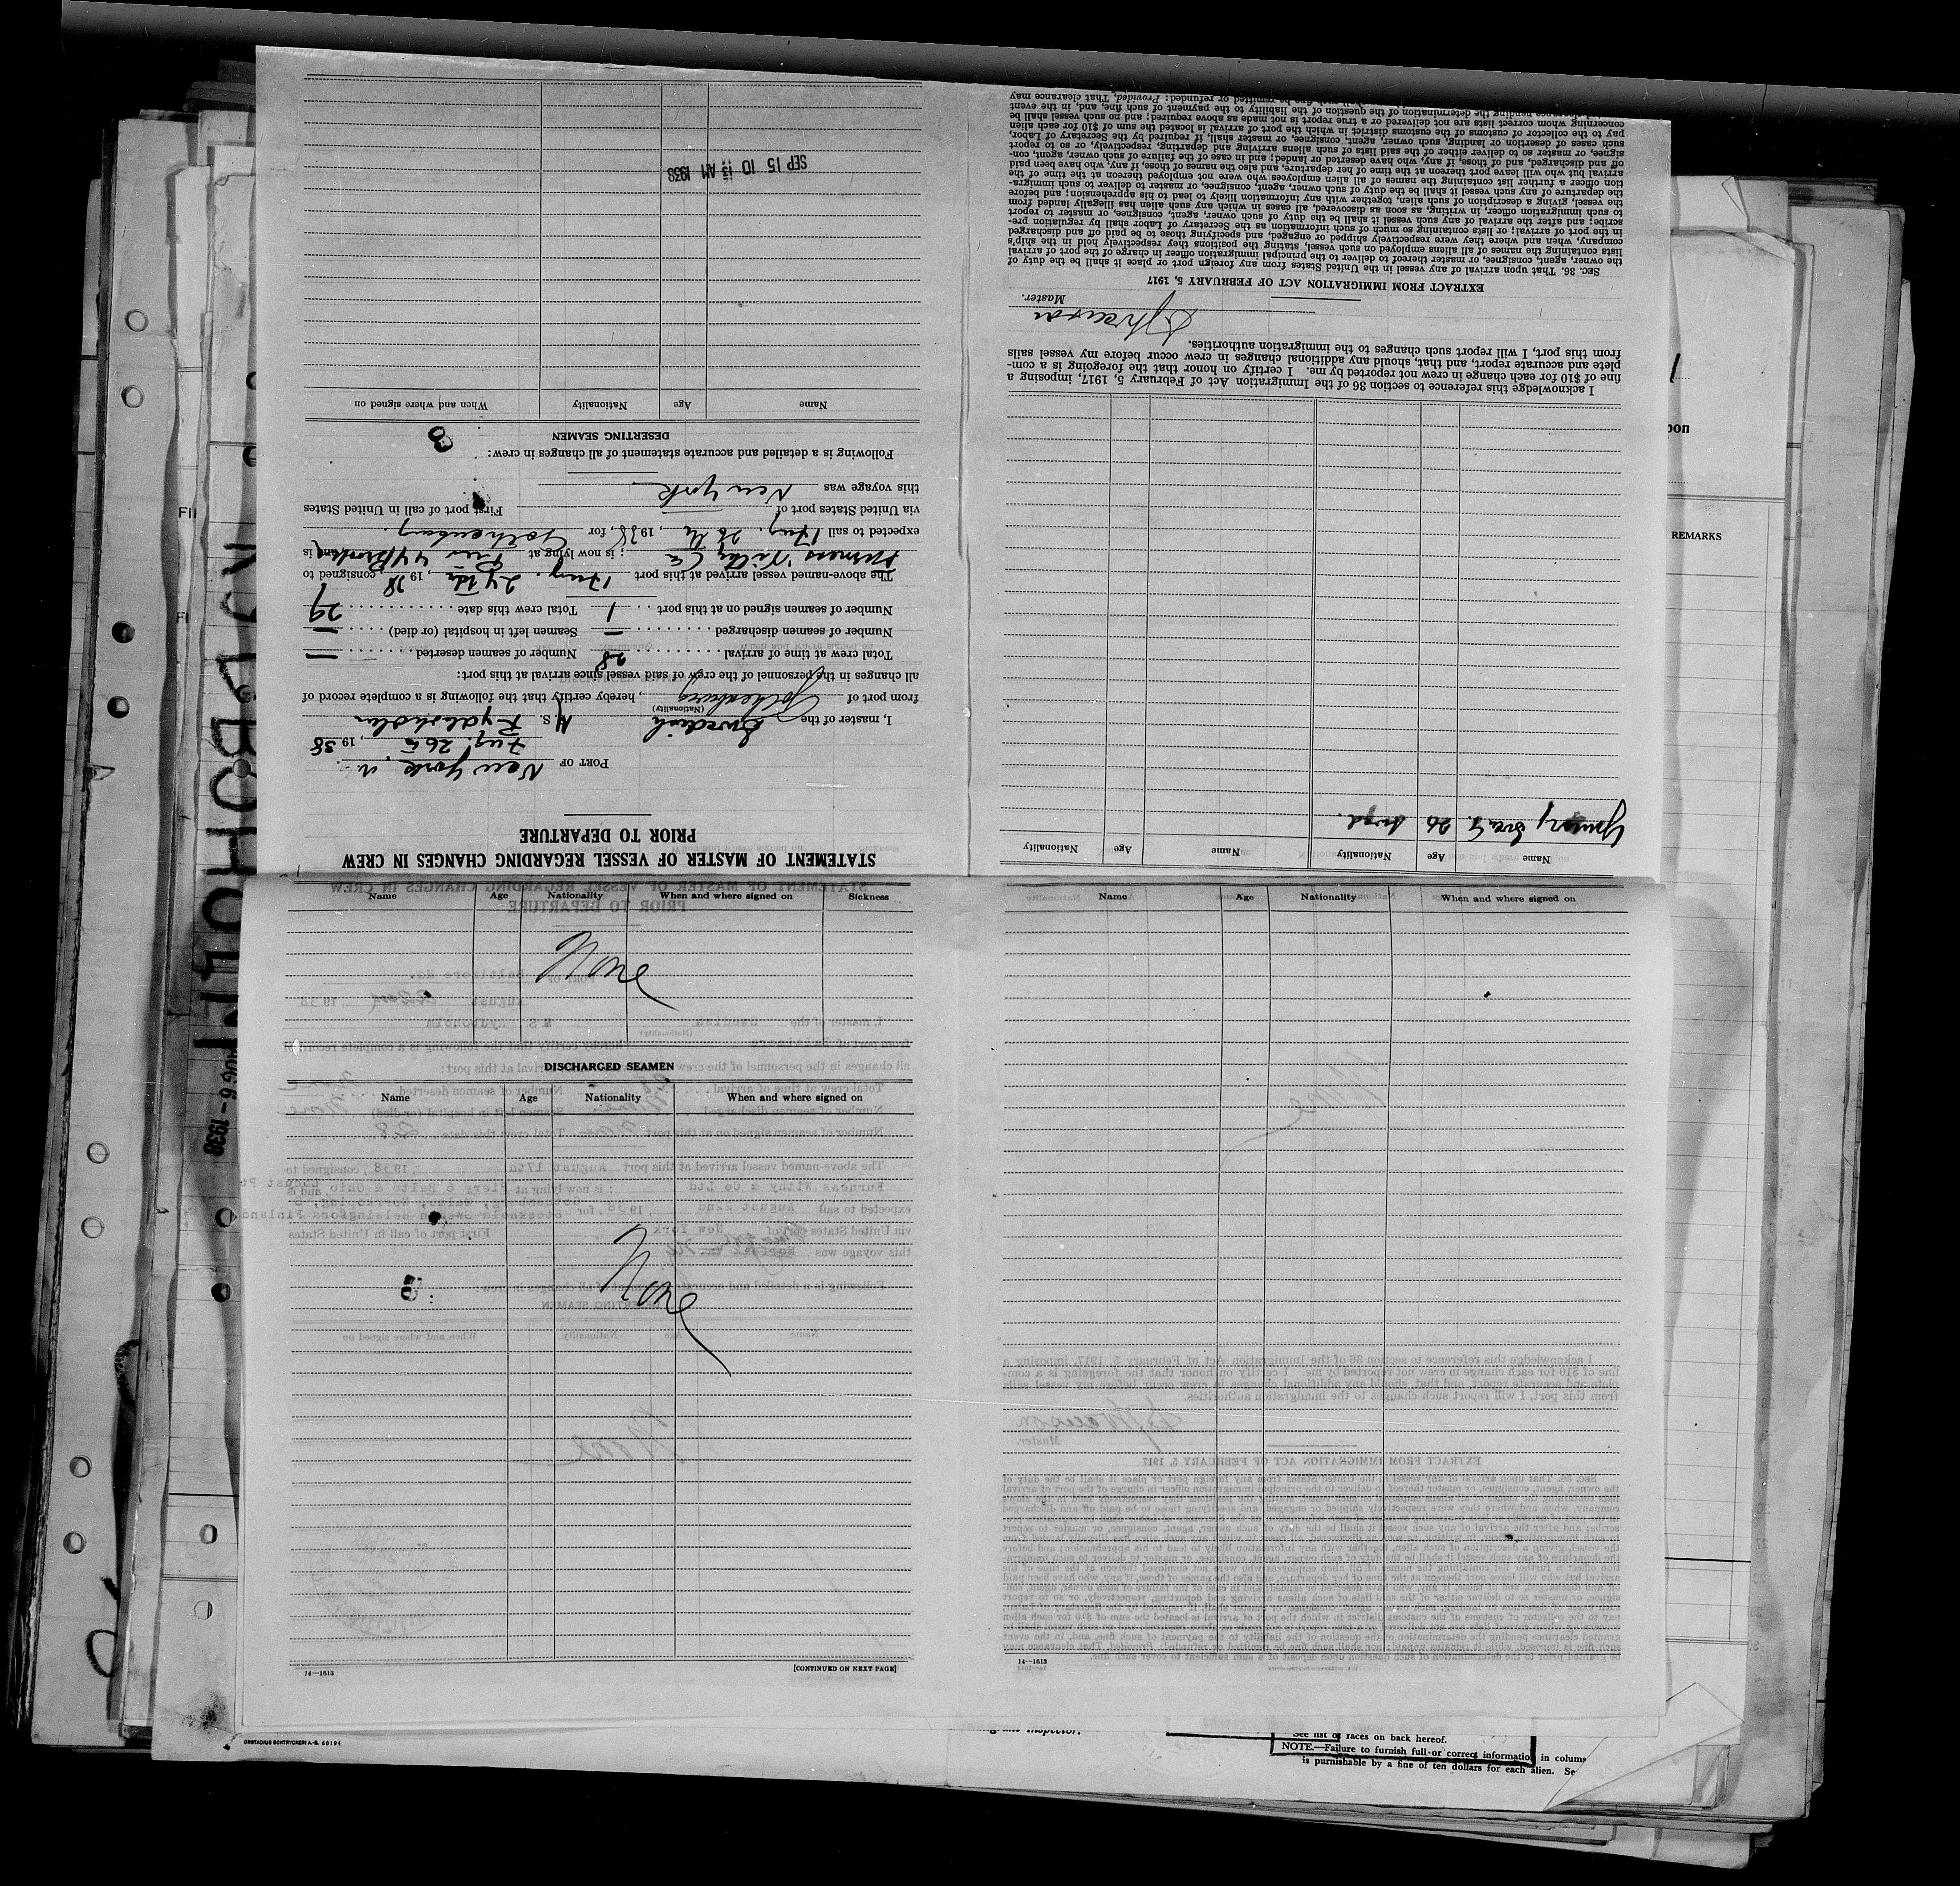 STATEMENT OF MASTER OF VESSEL REGARDING CHANGES IN CREW
PRIOR TO DEPARTURE
PORT OF New York
Aug. 26th, 1938
I, master of the Swedish M. S. Rydboholm
(Nationality)
from port of Gothenburg, hereby certify that the following is a complete record of
all changes in the personnel of the crew of said vessel since arrival at this port:
Total crew at time of arrival 28 Number of seamen deserted —
Number of seamen discharged — Seamen left in hospital (or died) —
Number of seamen signed on at this port 1 Total crew this date 29
The above-named vessel arrived at this port Aug. 24th, 1938 consigned to
Furness Withy Co; is now lying at Pier 44 Brooklyn and is
expected to sail Aug. 26th, 1938, for Gothenburg.
via United States port of First port of call in United States
this voyage was New York
Following is a detailed and accurate statement of all changes in crew:
3
DESERTING SEAMEN
Name Age Nationality When and where signed on
SEP 15 10 AM 1938
Name Age Nationality Name Age Nationality
26
I acknowledge this reference to section 36 of the Immigration Act of February 5, 1917, imposing a
fine of $10 for each change in crew not reported by me. I certify on honor that the foregoing is a com-
plete and accurate report, and that, should any additional changes in crew occur before my vessel sails
from this port, I will report such changes to the immigration authorities.
Master.
EXTRACT FROM IMMIGRATION ACT OF FEBRUARY 5, 1917
SEC. 36. That upon arrival of any vessel in the United States from any foreign port or place it shall be the duty of
the owner, agent, consignee, or master thereof to deliver to the principal immigration officer in charge of the port of arrival
lists containing the names of all aliens employed on such vessel, stating the positions they respectively hold in the ship's
company, when and where they were respectively shipped or engaged, and specifying those to be paid off and discharged
in the port of arrival; or lists containing so much of such information as the Secretary of Labor shall by regulation pre-
scribe; and after the arrival of any such vessel it shall be the duty of such owner, agent, consignee, or master to report
to such immigration officer, in writing, as soon as discovered, all cases in which any such alien has illegally landed from
the vessel, giving a description of such alien, together with any information likely to lead to his apprehension; and before
the departure of any such vessel it shall be the duty of such owner, agent, consignee, or master to deliver to such immigra-
tion officer a further list containing the names of all alien employees who were not employed thereon at the time of the
arrival but who will leave port thereon at the time of her departure, and also the names of those, if any, who have been paid
off and discharged, and of those, if any, who have deserted or landed; and in case of the failure of such owner, agent, con-
signee, or master so to deliver either of the said lists of such aliens arriving and departing, respectively, or so to report
such cases of desertion or landing, such owner, agent, consignee, or master, shall, if required by the Secretary of Labor,
pay to the collector of customs of the customs district in which the port of arrival is located the sum of $10 for each alien
concerning whom correct lists are not delivered or a true report is not made as above required; and no such vessel shall be
clearance pending the determination of the question of the liability to the payment of such fine, and, in the event
such fine be remitted or refunded: Provided, That clearance may
Name Age Nationality When and where signed on Sickness
None
DISCHARGED SEAMEN
Name Age Nationality When and where signed on
None
14—1613 [CONTINUED ON NEXT PAGE]
Name Age Nationality When and where signed on
14—1613
RYDBOHOLM
AUG 6 - 1938
REMARKS
See list of races on back hereof.
NOTE.—Failure to furnish full or correct information in colum
is punishable by a fine of ten dollars for each alien. Se
Inspector.